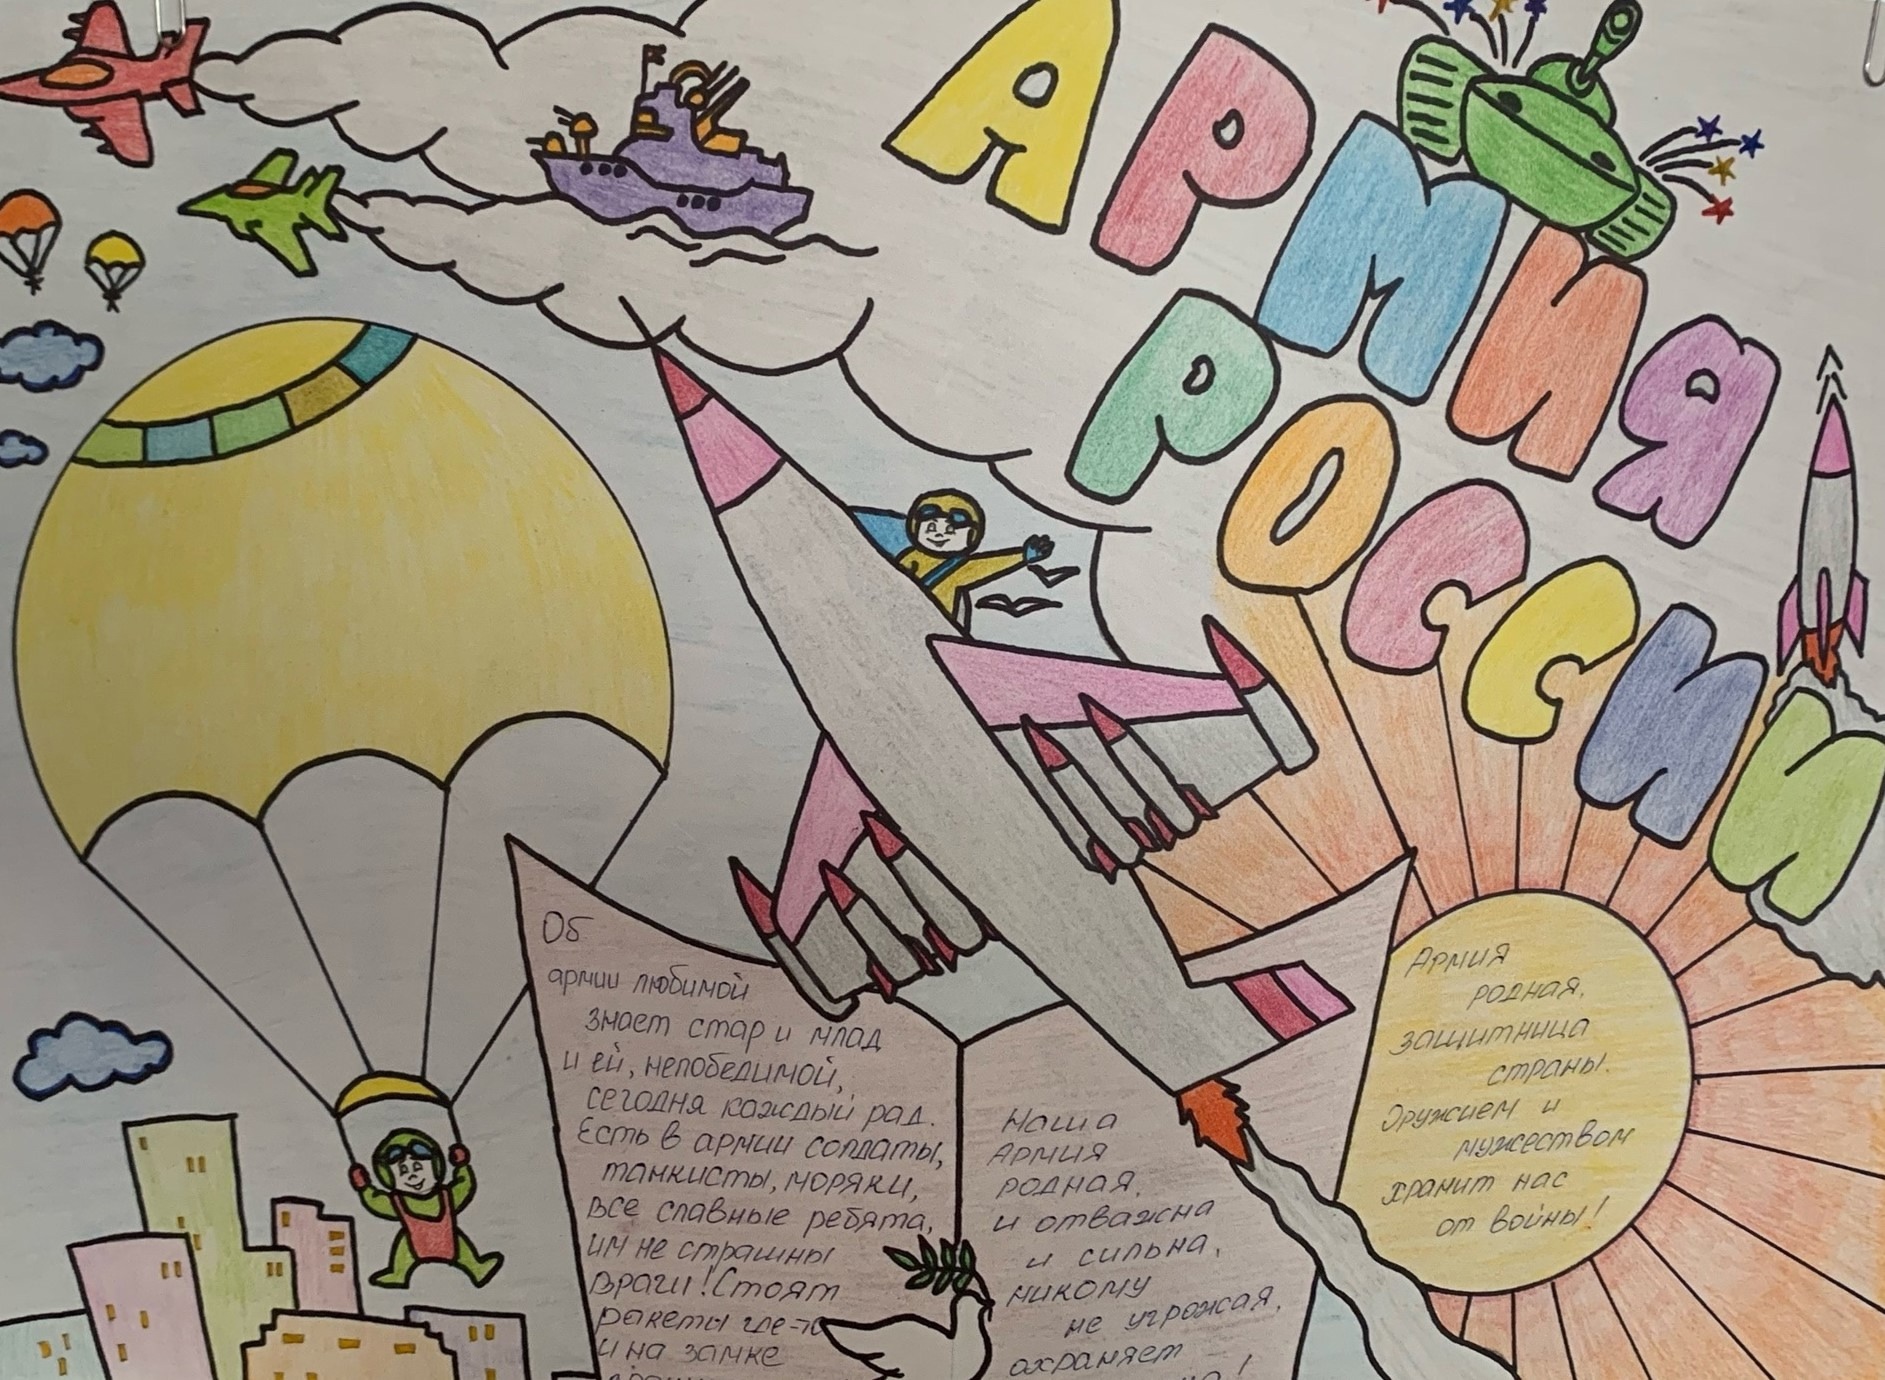 АРМИЯ
РОССИИ
Об
армии любимой
знает стар и млад
и ей, непобедимой,
сегодня каждый рад.
Есть в армии солдаты,
танкисты, моряки,
все славные ребята,
им не страшны
враги! Стоят
ракеты где-то
и на замке
Наша
Армия
родная,
и отважна
и сильна,
никому
не угрожая,
охраняет
Армия
родная,
защитница
страны.
Оружием и
мужеством
хранит нас
от войны!